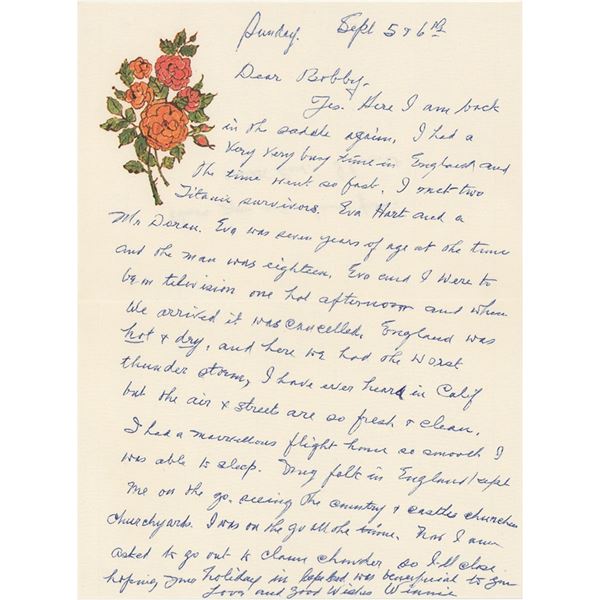 Sunday. Sept 5 & 6th
Dear Bobby,
Yes. Here I am back
in the saddle again, I had a
very very busy time in England and
the time went so fast. I met two
Titanic survivors. Eva Hart and a
Mr Doran. Eva was seven years of age at the time
and the man was eighteen. Eva and I were to
be on television one hot afternoon and when
we arrived it was cancelled. England was
hot & dry, and here we had the worst
thunder storm, I have ever heard in Calif
but the air & streets are so fresh & clean.
I had a marvellous flight home so smooth I
was able to sleep. My folk in England kept
me on the go, seeing the country & castles churches
churchyards. I was on the go all the time. Now I am
asked to go out to clam chowder, so I'll close
hoping your holiday in was beneficial to you
Love and good wishes Winnie